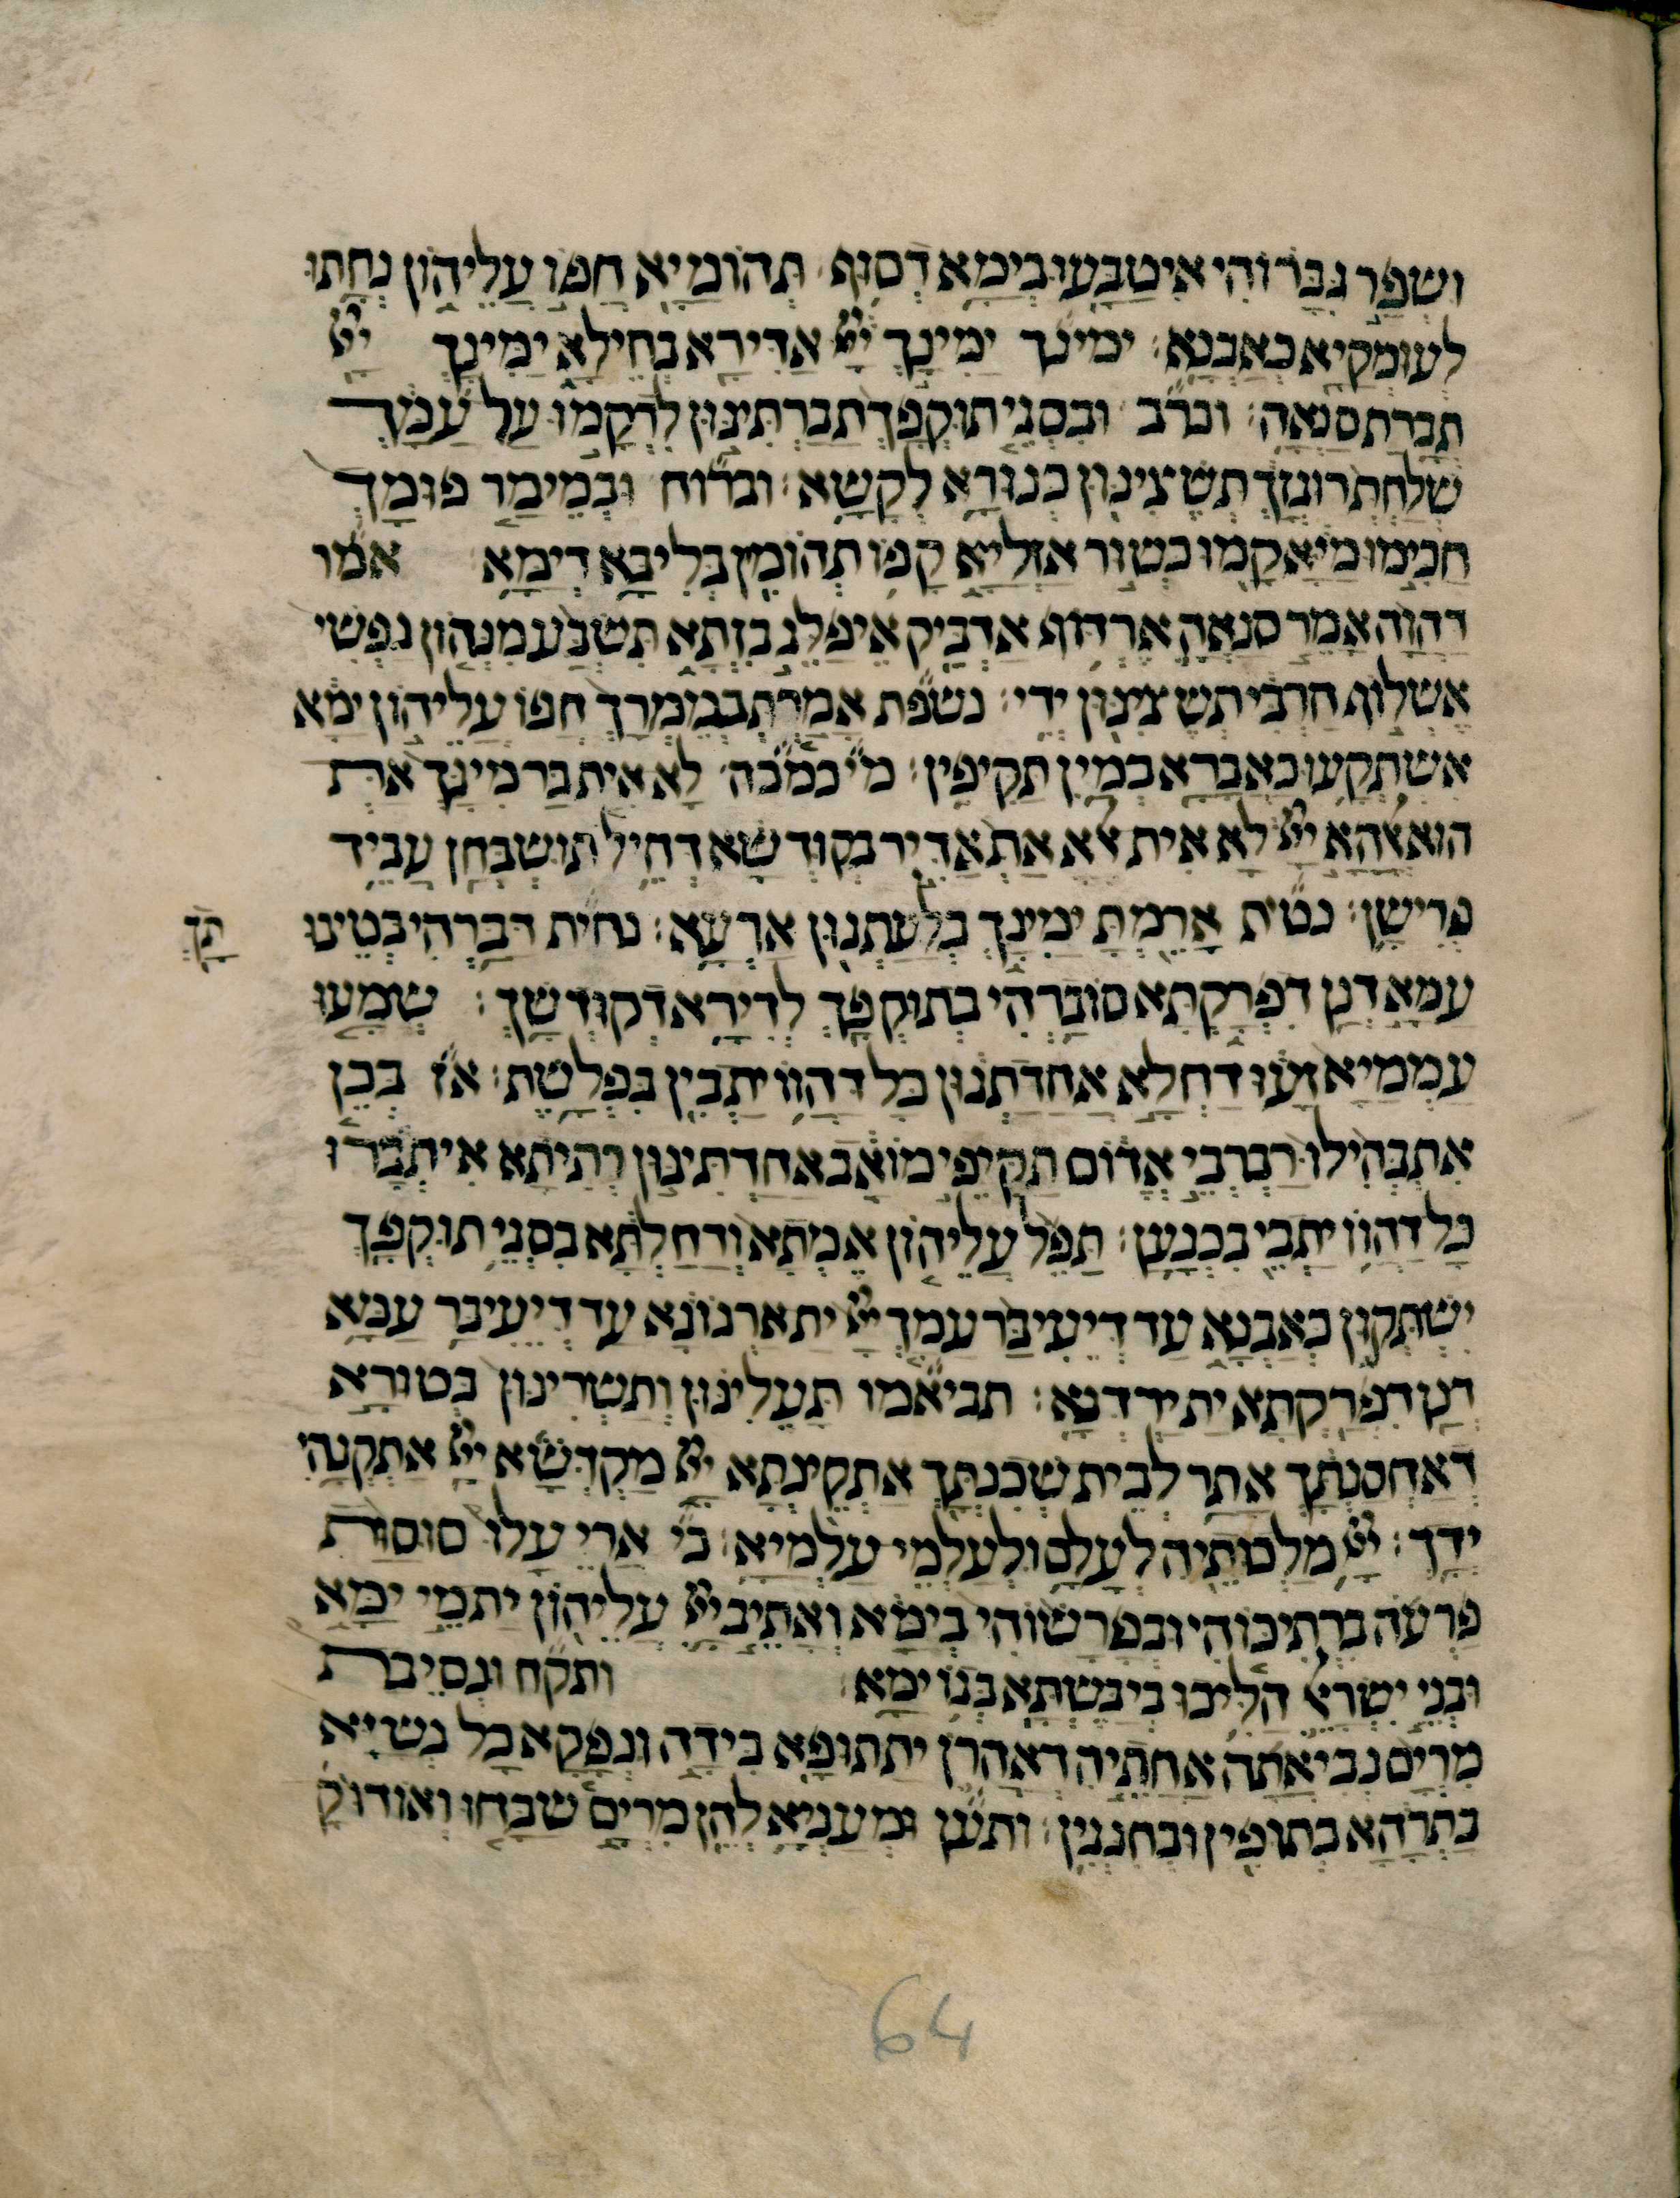 ושפר גברוהי איטבעו בימא דסוף תהומיא חפו עליהון נחתו
לעומקיא כאבנא׃ ימינך ימינך יי אדירא בחילא ימינך יי
תברת סנאה׃ וברב ובסגי תוקפך תברתינון לדקמו על עמך
שלחת רוגזך תשצינון כנורא לקשא׃ וברוח ובמימר פומך
חכימו מיא קמו כשור אזליא קפו תהומין בליבא דימא אמר
דהוה אמר סנאה ארדוף אדביק איפליג בזתא תשבע מנהון נפשי
אשלוף חרבי תשצינון ידי׃ נשפת אמרת במימרך חפו עליהון ימא
אשתקעו כאברא במיין תקיפין׃ מי כמכה לא אית בר מינך את
הוא אלהא יי לא אית אלא את אדיר בקודשא דחיל תושבחן עביד
פרישן׃ נטית ארימת ימינך בלעתנון ארעא׃ נחית דברהי בטינו
תך
עמא דנן דפרקתא סוברהי בתוקפך לדירא דקודשך׃ שמעו
עממיא וזעו דחלא אחדתנון כל דהוו יתבין בפלשת׃ אז בכן
אתבהילו רברבי אדום תקיפי מואב אחדתינון רתיתא איתברו
כל דהוו יתבי בכנען׃ תפל עליהון אימתא ודחלתא בסגי תוקפך
ישתקון כאבנא עד דיעיבר עמך יי ית ארנונא עד דיעיבר עמא
דנן דפרקתא ית ירדנא׃ תביאמו תעלינון ותשרינון בטורא
דאחסנתך אתר לבית שכנתך אתקינתא יי מקדשא יי אתקנהי
ידך׃ יי מלכותיה לעלם ולעלמי עלמיא׃ כי ארי עלו סוסות
פרעה ברתיכוהי ובפרשוהי בימא ואתיב יי עליהון ית מי ימא
ובני ישראל הליכו ביבשתא בגו ימא׃ ותקח ונסיבת
מרים נביאתה אחתיה דאהרן ית תופא בידה ונפקא כל נשיא
בתרהא בתופין ובחנגין׃ ותען ומעניא להן מרים שבחו ואודו ק
64